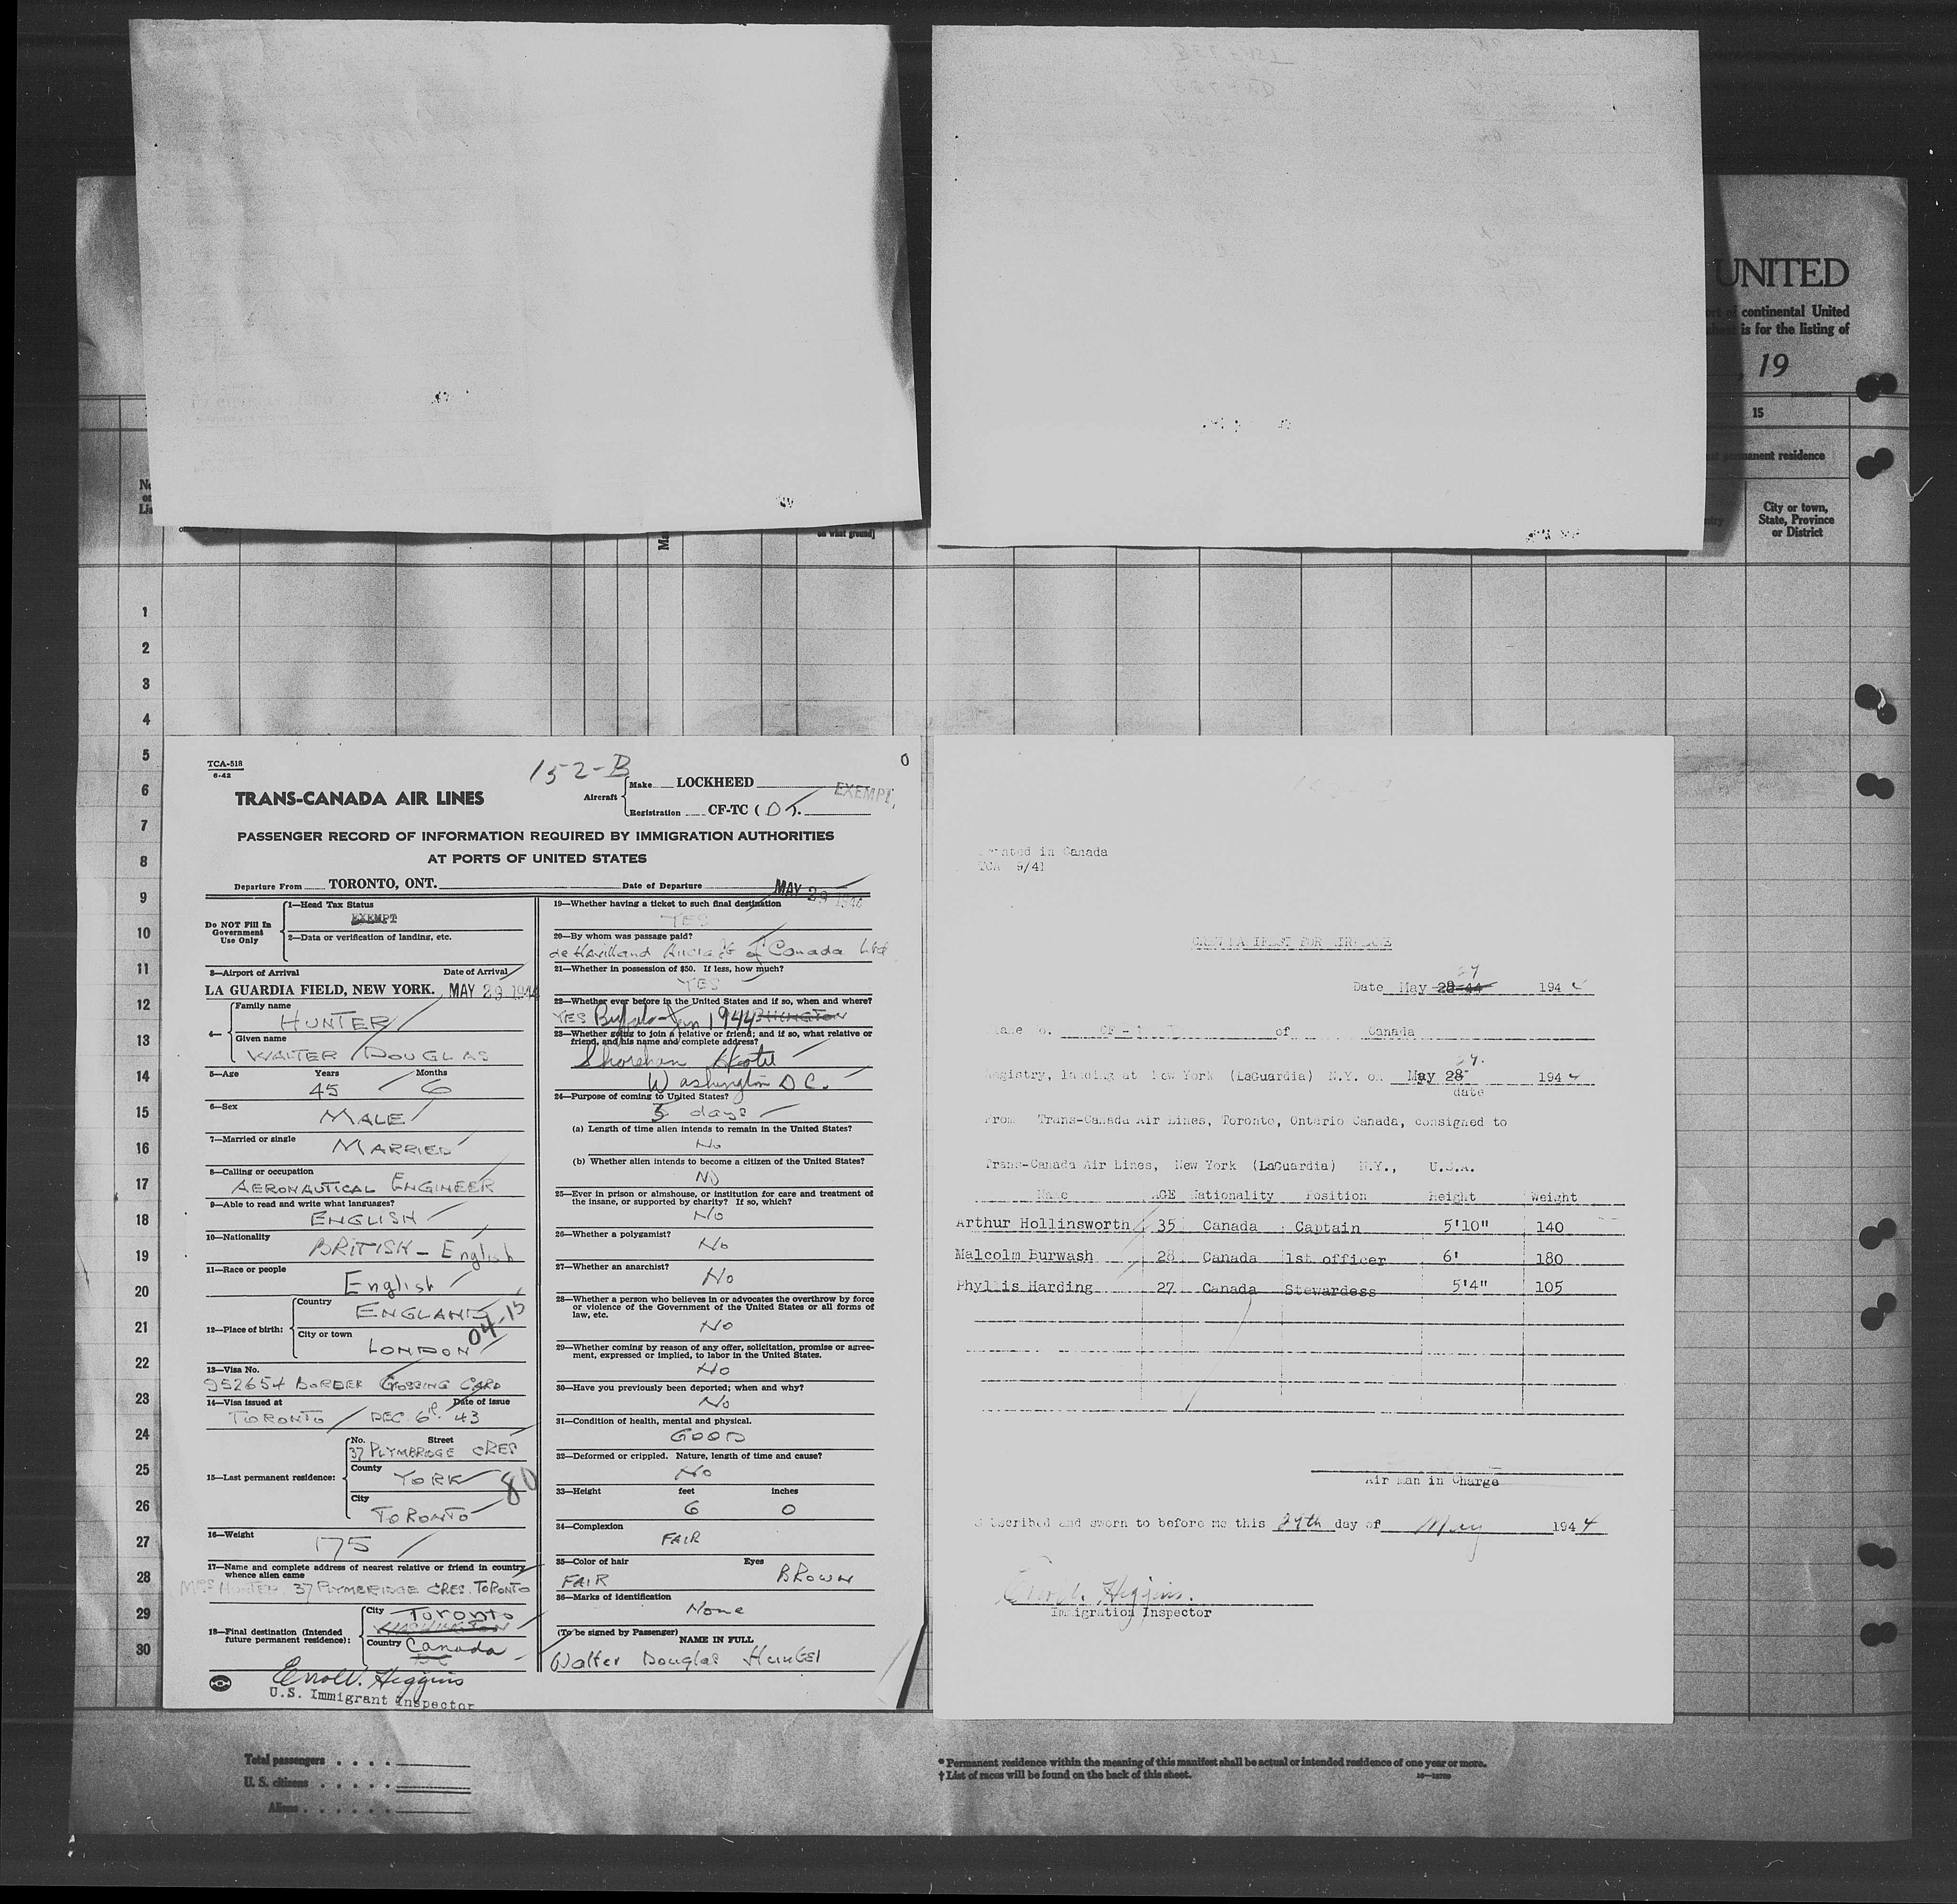 UNITED
continental United
is for the listing of
, 19
15
permanent residence
City or town,
State, Province
or District
on what ground]
1
2
3
4
5
6
7
8
9
10
11
12
13
14
15
16
17
18
19
20
21
22
23
24
25
26
27
28
29
30
TCA-518
6-42
152-B
0
TRANS-CANADA AIR LINES
Aircraft
Make LOCKHEED
Registration CF-TC
EXEMPT
PASSENGER RECORD OF INFORMATION REQUIRED BY IMMIGRATION AUTHORITIES
AT PORTS OF UNITED STATES
Departure From TORONTO, ONT. Date of Departure MAY 29 1944
Do NOT Fill In
Government
Use Only
1—Head Tax Status
EXEMPT
2—Data or verification of landing, etc.
3—Airport of Arrival Date of Arrival
LA GUARDIA FIELD, NEW YORK. MAY 29 1944
4— Family name
HUNTER
Given name
WALTER DOUGLAS
5—Age Years Months
45 6
6—Sex
MALE
7—Married or single
MARRIED
8—Calling or occupation
AERONAUTICAL ENGINEER
9—Able to read and write what languages?
ENGLISH
10—Nationality
BRITISH - English
11—Race or people
English
12—Place of birth:
Country
ENGLAND
04-15
City or town
LONDON
13—Visa No.
952654 BORDER CROSSING CARD
14—Visa issued at Date of issue
TORONTO DEC. 6th. 43
15—Last permanent residence:
No. Street
37 PLYMBRIDGE CRES
County
YORK
80
City
TORONTO
16—Weight
175
17—Name and complete address of nearest relative or friend in country
whence alien came
MRS HUNTER 37 PLYMBRIDGE CRES. TORONTO
18—Final destination (Intended
future permanent residence):
City Toronto
WASHINGTON
Country Canada
Errol V. Higgins
U.S. Immigrant Inspector
19—Whether having a ticket to such final destination
YES
20—By whom was passage paid?
de Havilland Aircraft of Canada Ltd
21—Whether in possession of $50. If less, how much?
YES
22—Whether ever before in the United States and if so, when and where?
YES Buffalo - Jan 1944 WASHINGTON
23—Whether going to join a relative or friend; and if so, what relative or
friend, and his name and complete address?
Shoreham Hotel
Washington D C.
24—Purpose of coming to United States?
5 days
(a) Length of time alien intends to remain in the United States?
No
(b) Whether alien intends to become a citizen of the United States?
No
25—Ever in prison or almshouse, or institution for care and treatment of
the insane, or supported by charity? If so, which?
No
26—Whether a polygamist?
No
27—Whether an anarchist?
No
28—Whether a person who believes in or advocates the overthrow by force
or violence of the Government of the United States or all forms of
law, etc.
No
29—Whether coming by reason of any offer, solicitation, promise or agree-
ment, expressed or implied, to labor in the United States.
No
30—Have you previously been deported; when and why?
No
31—Condition of health, mental and physical.
GOOD
32—Deformed or crippled. Nature, length of time and cause?
No
33—Height feet inches
6 0
34—Complexion
FAIR
35—Color of hair Eyes
FAIR BROWN
36—Marks of identification
None
(To be signed by Passenger)
NAME IN FULL
Walter Douglas Hunter
Printed in Canada
TCA 9/41
CREW MANIFEST FOR AIRPLANE
29
Date May 28-44 194 4
of Canada
29.
Registry, landing at New York (LaGuardia) N.Y. on May 28 194 4
date
From Trans-Canada Air Lines, Toronto, Ontario Canada, consigned to
Trans-Canada Air Lines, New York (LaGuardia) N.Y., U.S.A.
Name AGE Nationality Position Height Weight
Arthur Hollinsworth 35 Canada Captain 5'10" 140
Malcolm Burwash 28 Canada 1st officer 6' 180
Phyllis Harding 27 Canada Stewardess 5'4" 105
Air Man in Charge
Subscribed and sworn to before me this 29th day of May 194 4
Errol V. Higgins.
Immigration Inspector
Total passengers
U. S. citizens
Aliens
* Permanent residence within the meaning of this manifest shall be actual or intended residence of one year or more.
† List of races will be found on the back of this sheet.